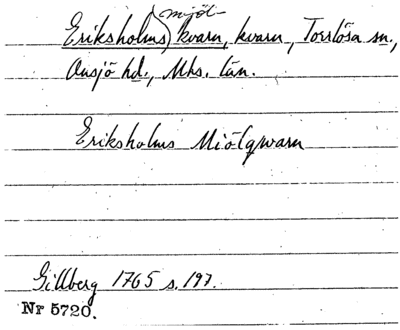 mjöl-
Eriksholms kvarn, kvarn, Torrlösa sn.,
Onsjö hd., Mhs. län.
Eriksholms Miölqwarn
Gillberg 1765 s. 197.
Nr 5720.